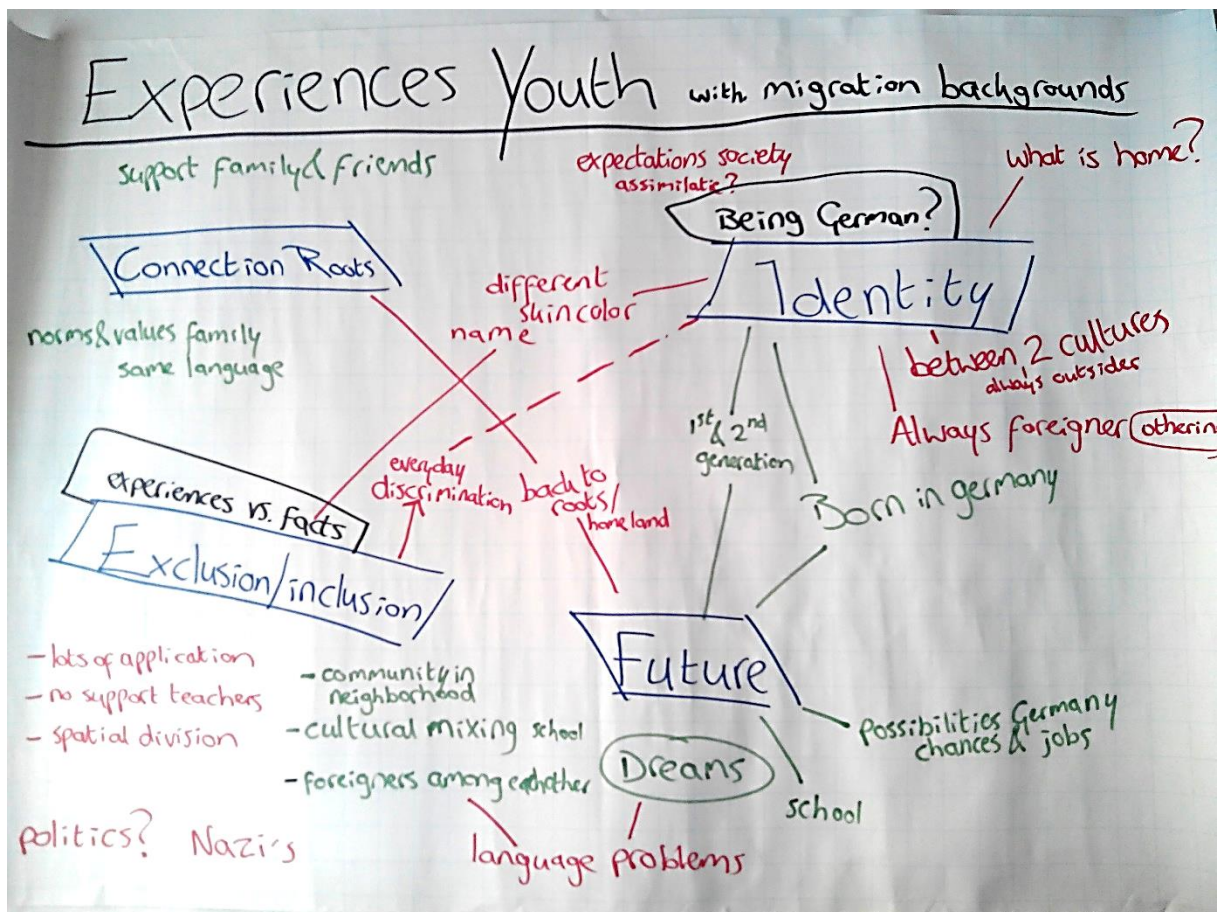 Experiences Youth with migration backgrounds
support family & friends
expectations society
assimilatie?
what is home?
Being German?
Connection Roots
Identity
different
skin color
name
norms & values family
same language
between 2 cultures
always outsider
Always foreigner otherin
1st & 2nd
generation
Born in germany
everyday
discrimination
back to
roots/
homeland
experiences vs. Facts
Exclusion/inclusion
Future
- lots of application
- no support teachers
- spatial division
- community in
neighborhood
- cultural mixing school
- foreigners among eachother
possibilities Germany
chances & jobs
Dreams
school
politics? Nazi's
language problems